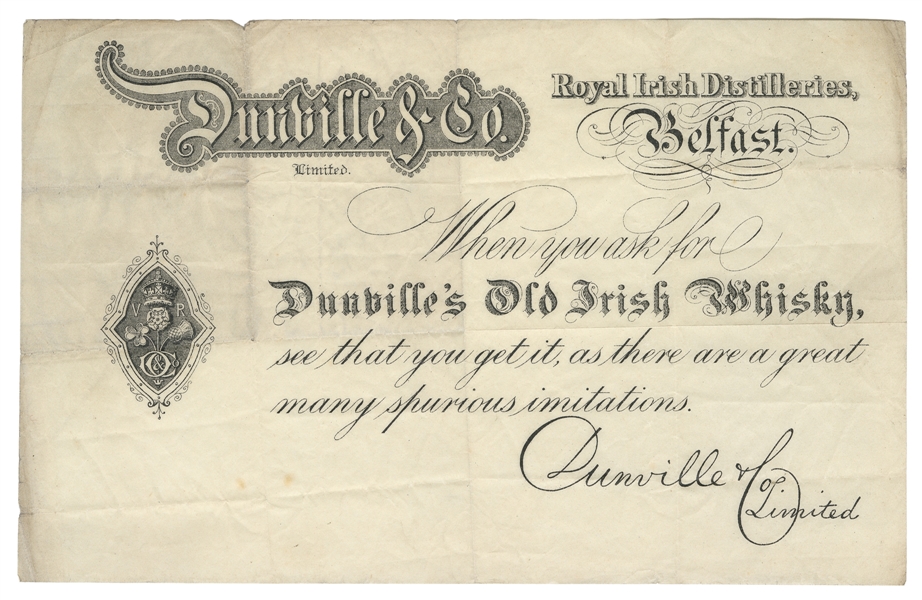 Dunville & Co.
Limited.
Royal Irish Distilleries,
Belfast.
When you ask for
Dunville's Old Irish Whisky,
see that you get it, as there are a great
many spurious imitations.
V R
D & Co
Dunville & Co
Limited